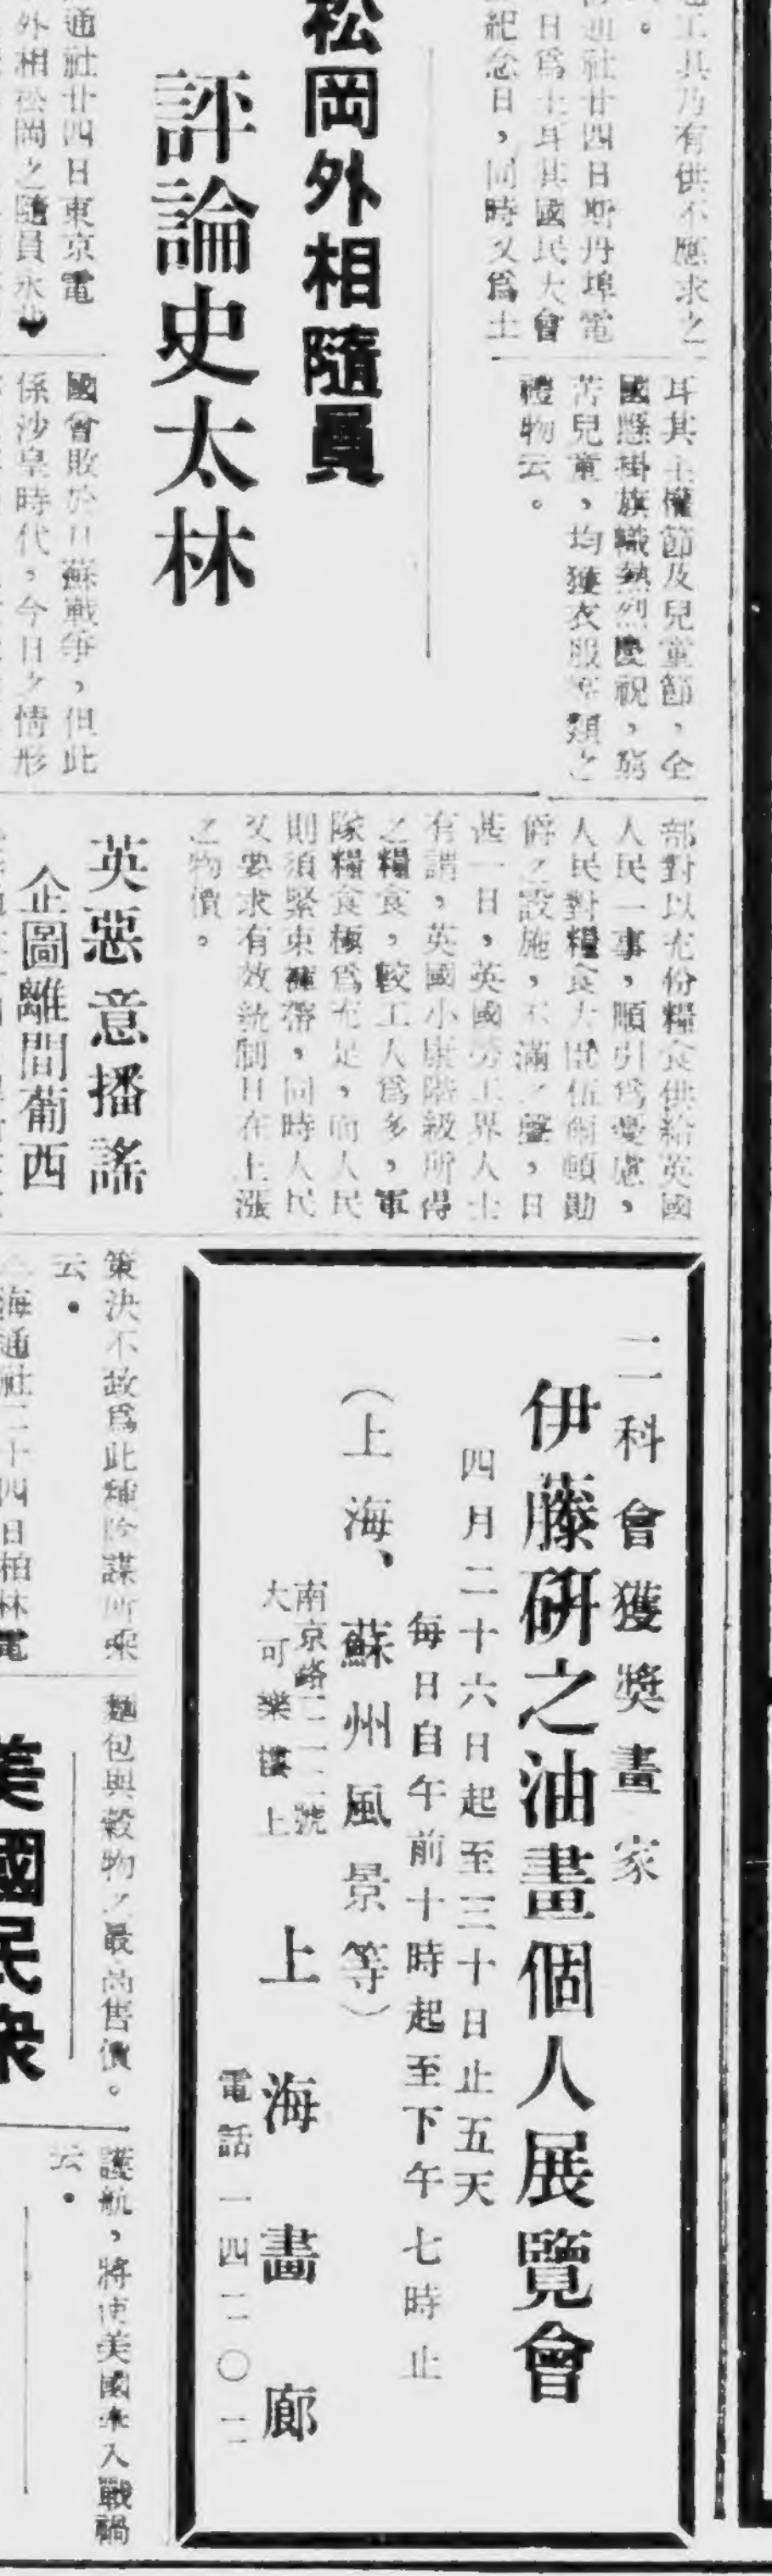 工具乃有供不應求之
。
通社廿四日斯丹埠電
日為土耳其國民大會
紀念日，同時又為土
耳其主權節及兒童節，全
國懸掛旗幟熱烈慶祝，窮
苦兒童，均獲衣服等類之
禮物云。
松岡外相隨員
評論史太林
通社廿四日東京電
外相松岡之隨員永
國會敗於日蘇戰爭，但此
係沙皇時代，今日之情形
部對以充份糧食供給英國
人民一事，頗引為憂慮，
人民對糧食大臣伍爾頓勛
爵之設施，不滿之聲，日
甚一日，英國勞工界人士
有謂，英國小康階級所得
之糧食，較工人為多，軍
隊糧食極為充足，而人民
則須緊束褲帶，同時人民
又要求有效統制日在上漲
之物價。
英惡意播謠
企圖離間葡西
策決不致為此種陰謀所乘
云。
海通社二十四日柏林電
麵包與穀物之最高售價。
美國民衆
護航，將使美國牽入戰禍
云。
二科會獲獎畫家
伊藤研之油畫個人展覽會
四月二十六日起至三十日止五天
每日自午前十時起至下午七時止
（上海、蘇州風景等）
南京路二一二號
大可樂樓上
上海畫廊
電話一四二〇二